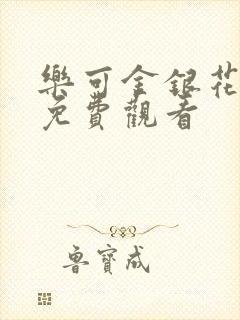 樂可金銀花
免費觀看
魯寶成